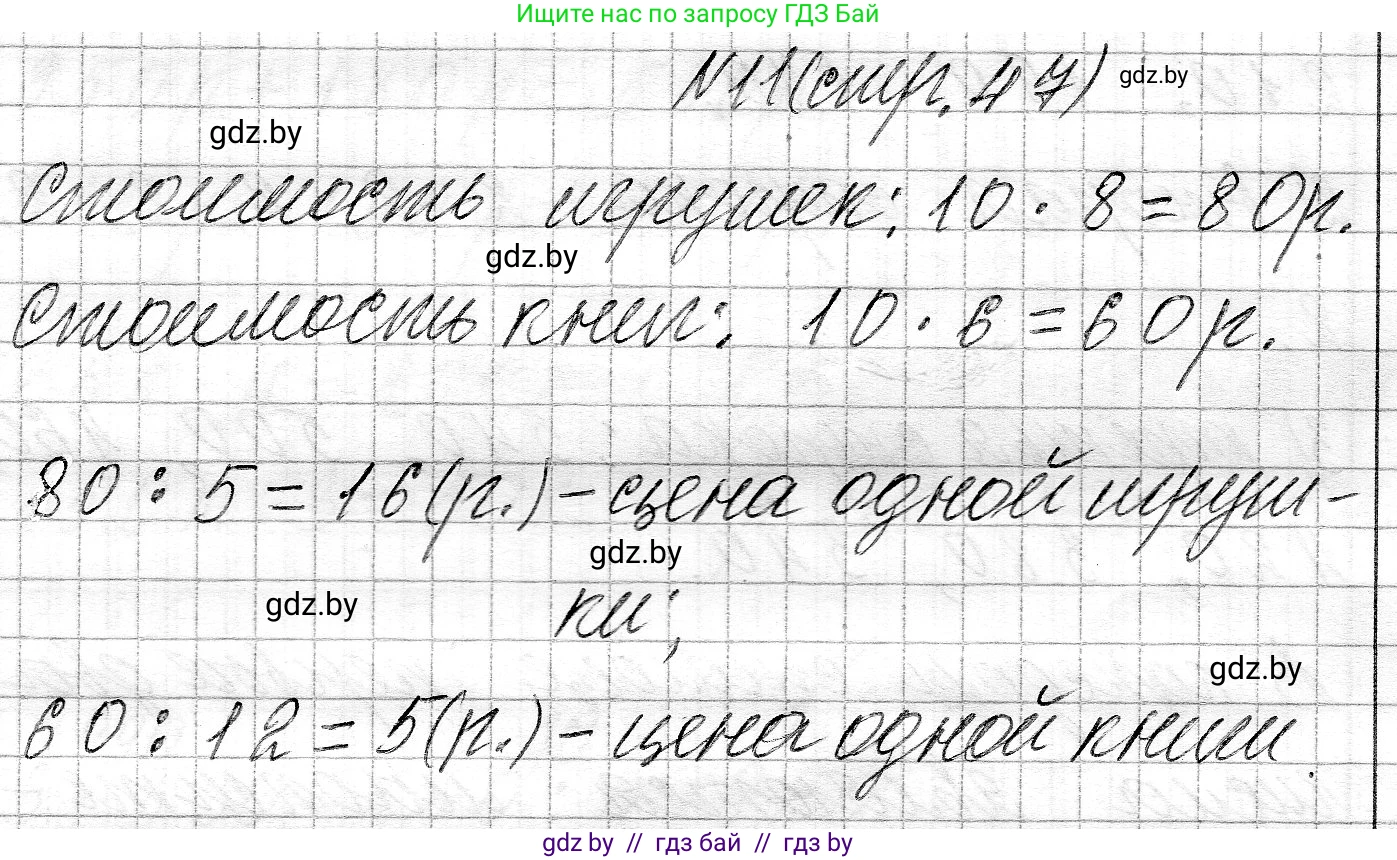 Ищите нас по запросу ГДЗ Бай
№11(стр. 47)
gdz.by
gdz.by
Стоимость игрушек: 10 · 8 = 80р.
gdz.by
Стоимость книг: 10 · 6 = 60р.
80 : 5 = 16(р.) – цена одной игруш-
gdz.by
gdz.by
ки;
gdz.by
60 : 12 = 5(р.) – цена одной книги.
gdz by // гдз бай // гдз by